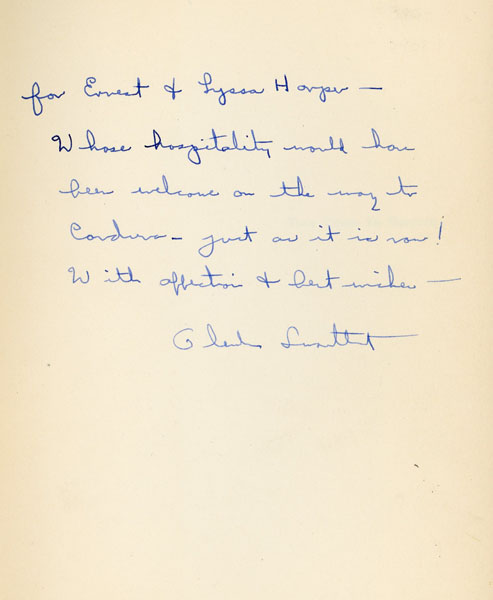 for Ernest & Lyssa Harper —
Whose hospitality would have
been welcome on the way to
Cordura — just as it is now!
With affection & best wishes —
Glendon Swarthout